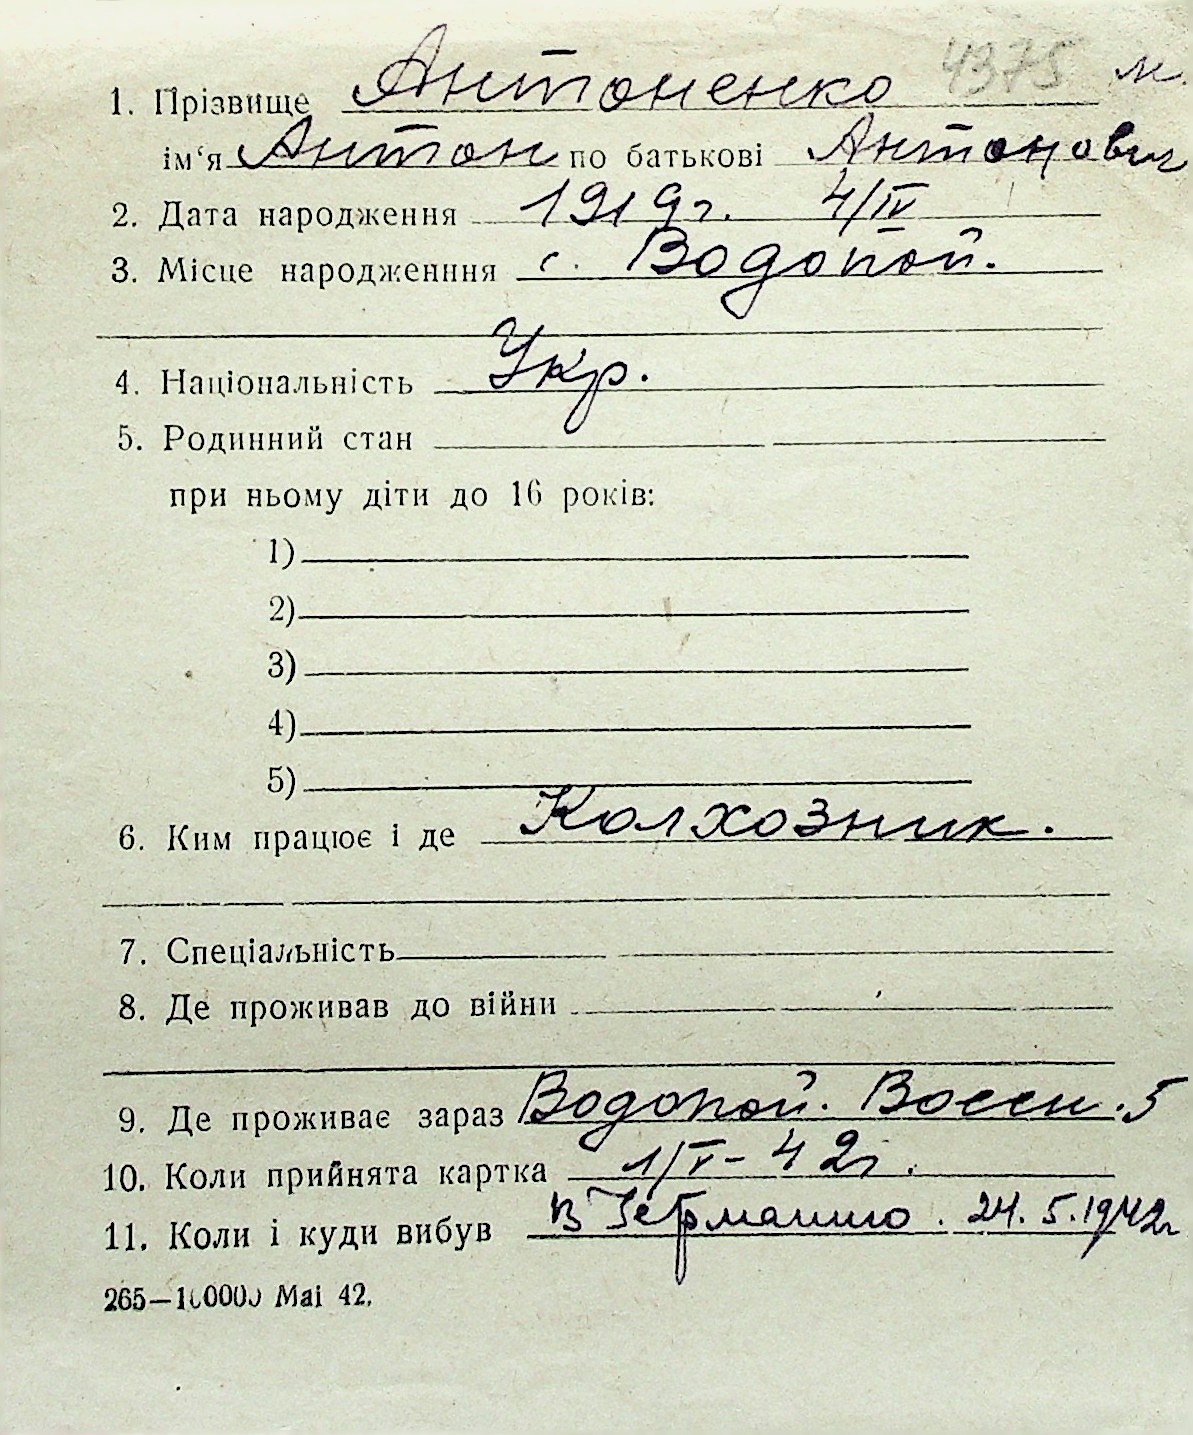 4375 м.
1. Прізвище Антоненко
ім‘я Антон по батькові Антонович
2. Дата народження 1919 г. 4/IV
3. Місце народженння с. Водопой.
4. Національність Укр.
5. Родинний стан
при ньому діти до 16 років:
1)
2)
3)
4)
5)
6. Ким працює і де Колхозник.
7. Спеціальність
8. Де проживав до війни
9. Де проживає зараз Водопой. 5
10. Коли прийнята картка 1/V-42г.
11. Коли і куди вибув в Германию. 24.5.1942г
265—100000 Mai 42.